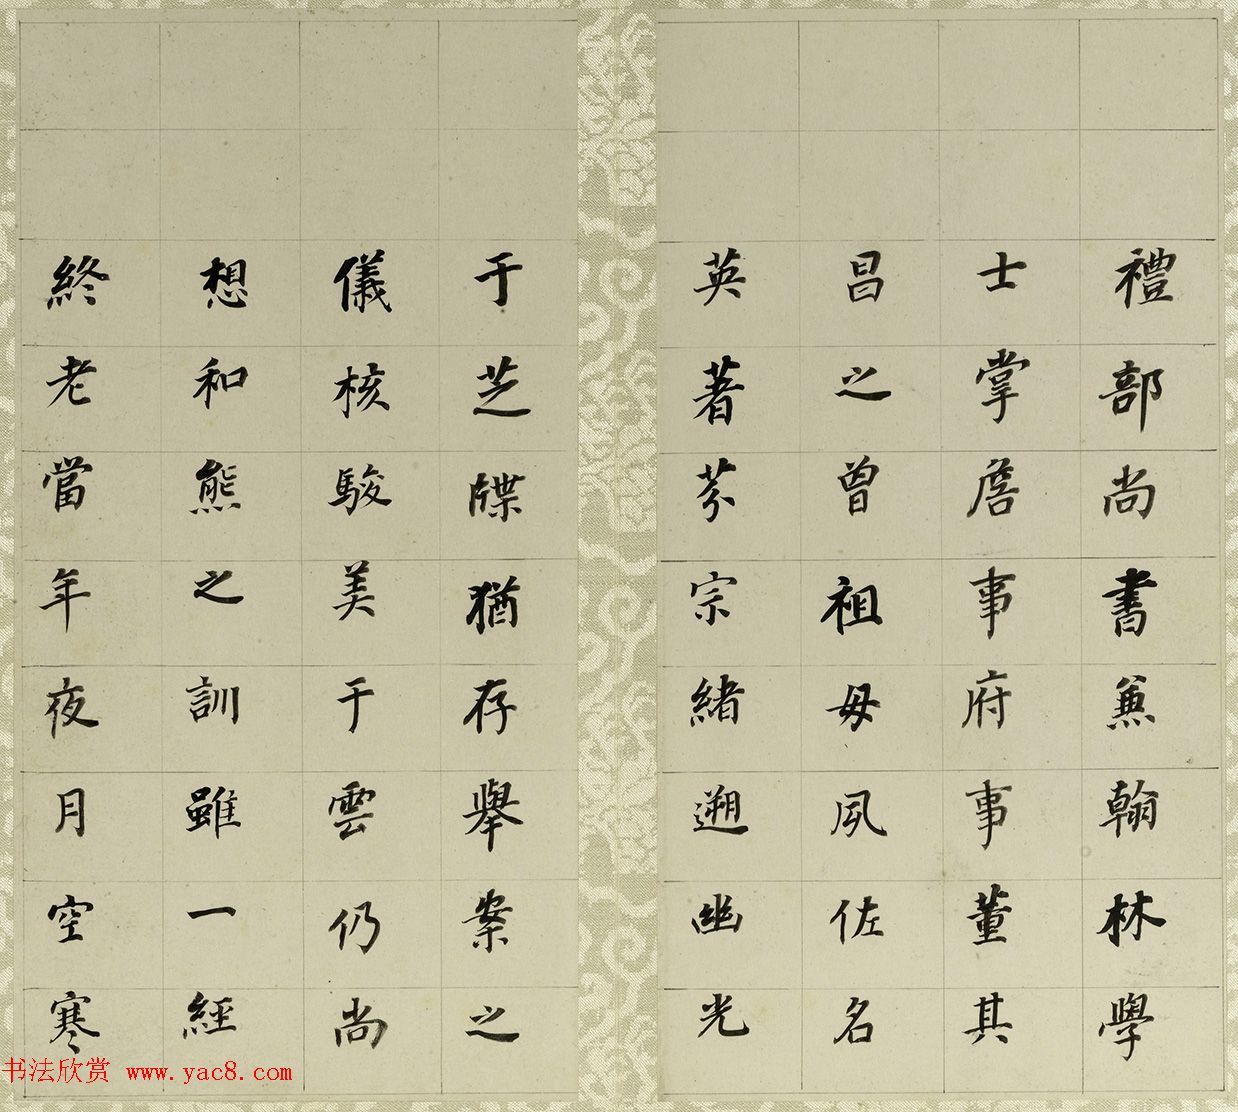 禮部尚書兼翰林學
士掌詹事府事董其
昌之曾祖母夙佐名
英著芬宗緒遡幽光
于芝牒猶存舉案之
儀核駿美于雲仍尚
想和熊之訓雖一經
終老當年夜月空寒
书法欣赏 www.yac8.com